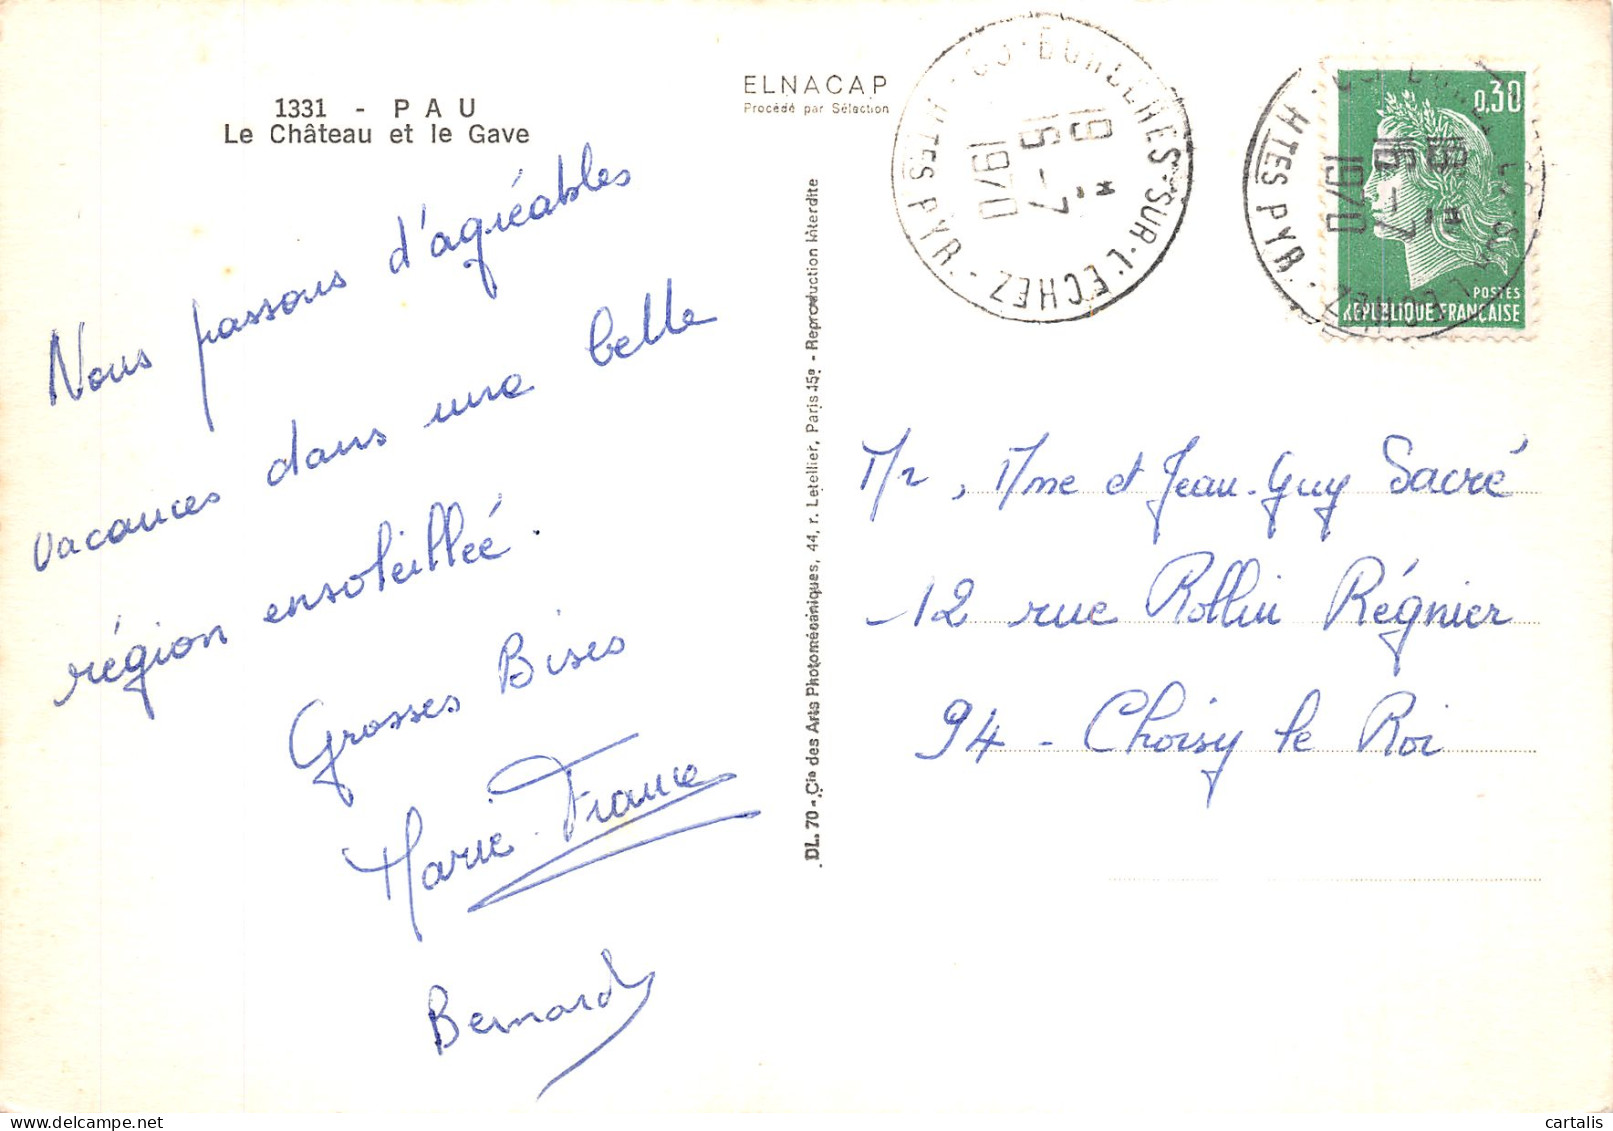 1331 - PAU
Le Château et le Gave
ELNACAP
Procédé par Sélection
Nous passons d'agréables
vacances dans une belle
région ensoleillée.
Grosses Bises
Marie-France
Bernard
DL. 70 - Cie des Arts Photomécaniques, 44, r. Letellier, Paris 15e - Reproduction Interdite
65 - BORDERES-SUR-L'ECHEZ - HTES PYR. -
19 H
15-7
1970
0,30
POSTES
REPUBLIQUE FRANÇAISE
HTES PYR.
1970
Mr, Mme et Jean-Guy Sacré
12 rue Rollin Régnier
94 - Choisy le Roi
cartalis